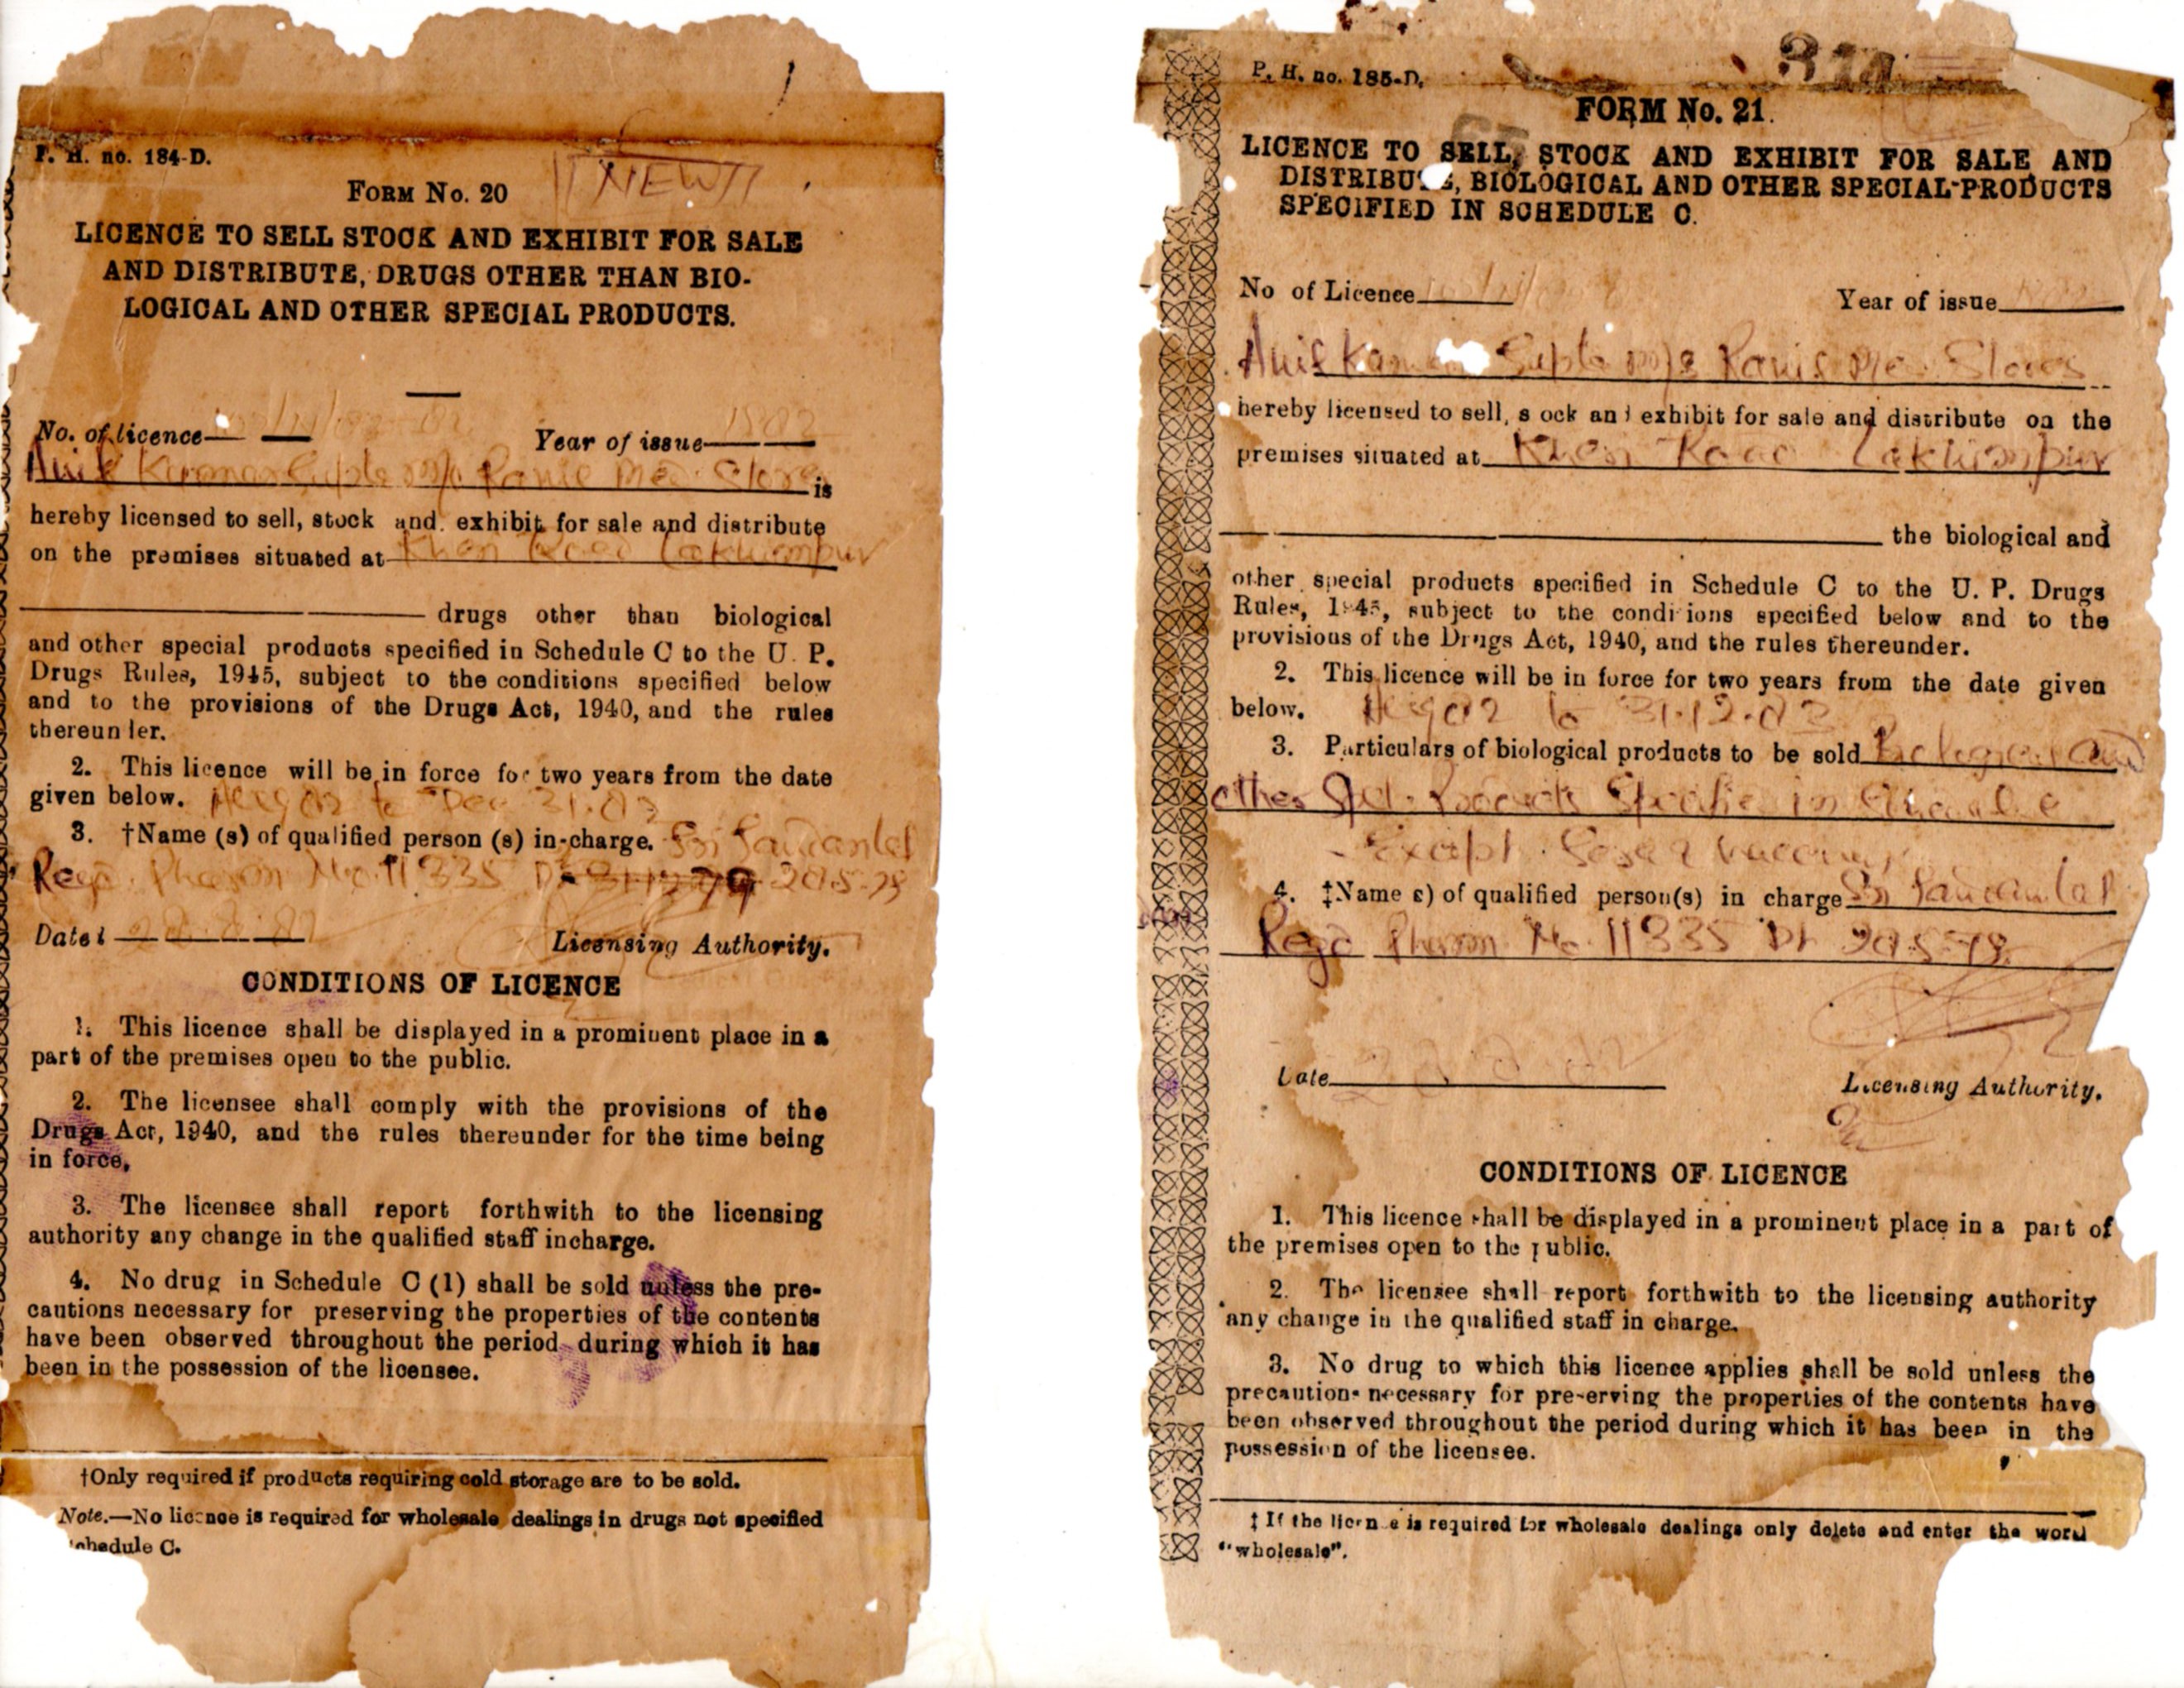 P. H. no. 184-D.
NEW
FORM No. 20
LICENCE TO SELL STOCK AND EXHIBIT FOR SALE
AND DISTRIBUTE, DRUGS OTHER THAN BIO-
LOGICAL AND OTHER SPECIAL PRODUCTS.
No. of licence Year of issue 1982
Anil Kumar Gupta M/s Med. Stores is
hereby licensed to sell, stock and exhibit for sale and distribute
on the premises situated at Kheri Road Lakhimpur
drugs other than biological
and other special products specified in Schedule C to the U. P.
Drugs Rules, 1945, subject to the conditions specified below
and to the provisions of the Drugs Act, 1940, and the rules
thereunder.
2. This licence will be in force for two years from the date
given below. to Dec 31.83
3. †Name (s) of qualified person (s) in-charge. Sri
Regd. Pharm No. 11335
Date Licensing Authority.
CONDITIONS OF LICENCE
1. This licence shall be displayed in a prominent place in a
part of the premises open to the public.
2. The licensee shall comply with the provisions of the
Drugs Act, 1940, and the rules thereunder for the time being
in force.
3. The licensee shall report forthwith to the licensing
authority any change in the qualified staff incharge.
4. No drug in Schedule C (1) shall be sold unless the pre-
cautions necessary for preserving the properties of the contents
have been observed throughout the period during which it has
been in the possession of the licensee.
†Only required if products requiring cold storage are to be sold.
Note.—No licence is required for wholesale dealings in drugs not specified
chedule C.
P. H. no. 185-D.
FORM No. 21.
LICENCE TO SELL, STOCK AND EXHIBIT FOR SALE AND
DISTRIBUTE, BIOLOGICAL AND OTHER SPECIAL-PRODUCTS
SPECIFIED IN SCHEDULE C.
No of Licence Year of issue
Anil Kumar Gupta M/s Med. Stores
hereby licensed to sell, stock and exhibit for sale and distribute on the
premises situated at Kheri Road Lakhimpur
the biological and
other special products specified in Schedule C to the U. P. Drugs
Rules, 1945, subject to the conditions specified below and to the
provisions of the Drugs Act, 1940, and the rules thereunder.
2. This licence will be in force for two years from the date given
below. to 31.12.83
3. Particulars of biological products to be sold Biological and
other Spl. Products in Schedule C
Except
4. ‡Name s) of qualified person(s) in charge Sri
Regd Pharm No. 11335 Dt
Date
Licensing Authority.
CONDITIONS OF LICENCE
1. This licence shall be displayed in a prominent place in a part of
the premises open to the public.
2. The licensee shall report forthwith to the licensing authority
any change in the qualified staff in charge.
3. No drug to which this licence applies shall be sold unless the
precautions necessary for preserving the properties of the contents have
been observed throughout the period during which it has been in the
possession of the licensee.
‡ If the licence is required for wholesale dealings only delete and enter the word
"wholesale".